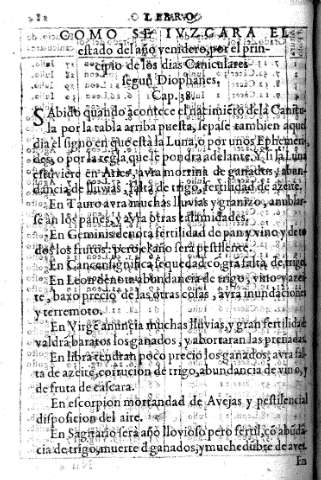 LEBRO
COMO SE IVZGARA EL
estado del año venidero, por el prin-
cipio de los dias Caniculares
segun Diophanes,
Cap. 38.
SAbido quando acontece el nacimiẽto de la Canicu
la por la tabla arriba puesta, sepase tambien aquel
dia el signo en que está la Luna, o por unos Ephemeri
des, o por la regla que se pondra adelante. Y si la Luna
estuviere en Aries, avra morrina de ganados, y abun-
dancia de lluvias, falta de trigo, fertilidad de azeite.
En Tauro avra muchas lluvias y granizo, anublar
se an los panes, y avra otras calamidades,
En Geminis denota fertilidad de pan y vino, y de to
dos los frutos: pero el año será pestilente.
En Cancer significa sequedad cõ grã falta de trigo.
En Leon denota abundancia de trigo, vino y azey
te, baxo precio de las otras cosas, avra inundaciones
y terremoto.
En Virgẽ anuncia muchas lluvias, y gran fertilidad
valdrá baratos los ganados, y abortaran las preñadas
En libra tendran poco precio los ganados, avra fal
ta de azeite, corrución de trigo, abundancia de vino, y
de fruta de cascara.
En escorpion mortandad de Avejas y pestilencial
disposicion del aire.
En Sagitario será año llovioso pero fertil, cõ abũdã
cia de trigo, muerte d ganados, y muchedũbre de aves.
En